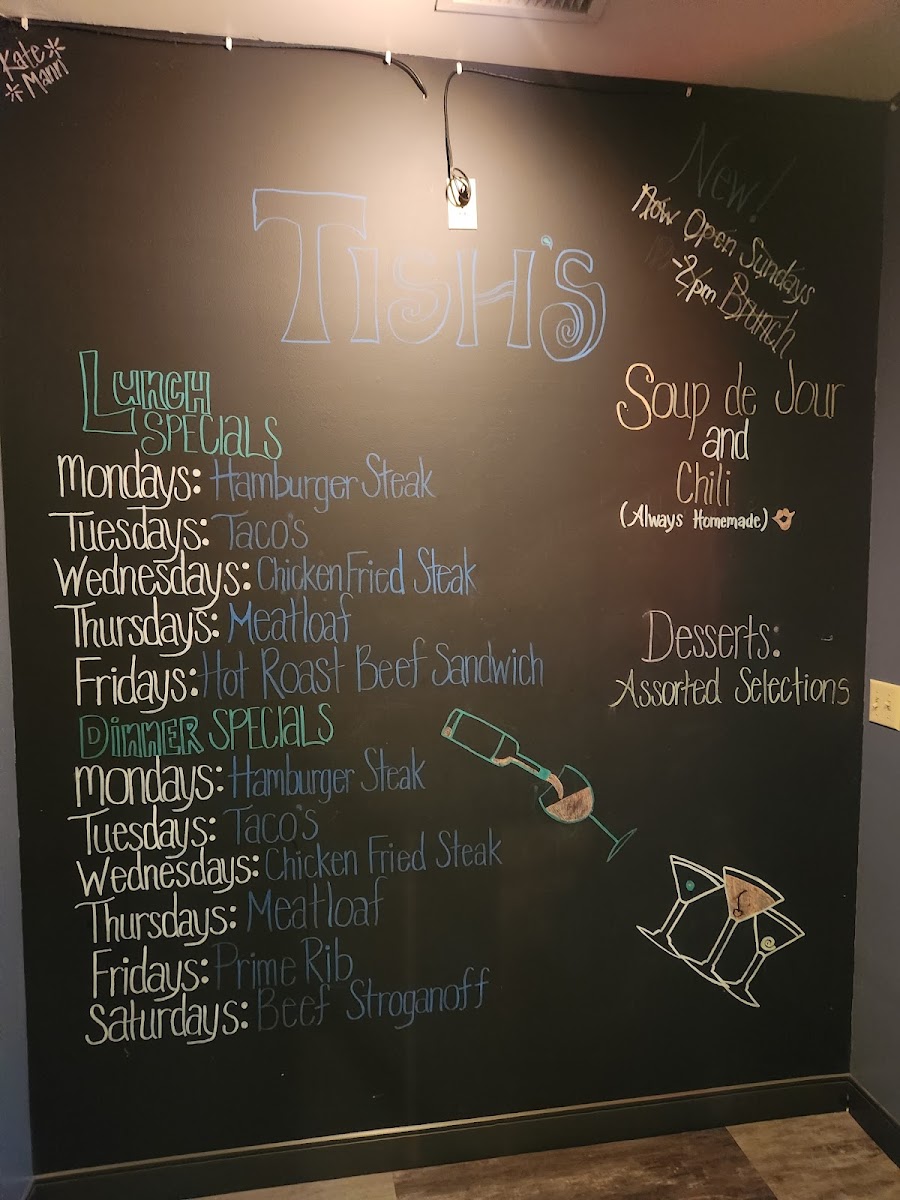 *Kate*
*Mann
Tish's
New!
Now Open Sundays
-2pm Brunch
Lunch
Specials
Mondays: Hamburger Steak
Tuesdays: Taco's
Wednesdays: Chicken Fried Steak
Thursdays: Meatloaf
Fridays: Hot Roast Beef Sandwich
Dinner Specials
Mondays: Hamburger Steak
Tuesdays: Taco's
Wednesdays: Chicken Fried Steak
Thursdays: Meatloaf
Fridays: Prime Rib
Saturdays: Beef Stroganoff
Soup de Jour
and
Chili
(Always Homemade)
Desserts:
Assorted Selections